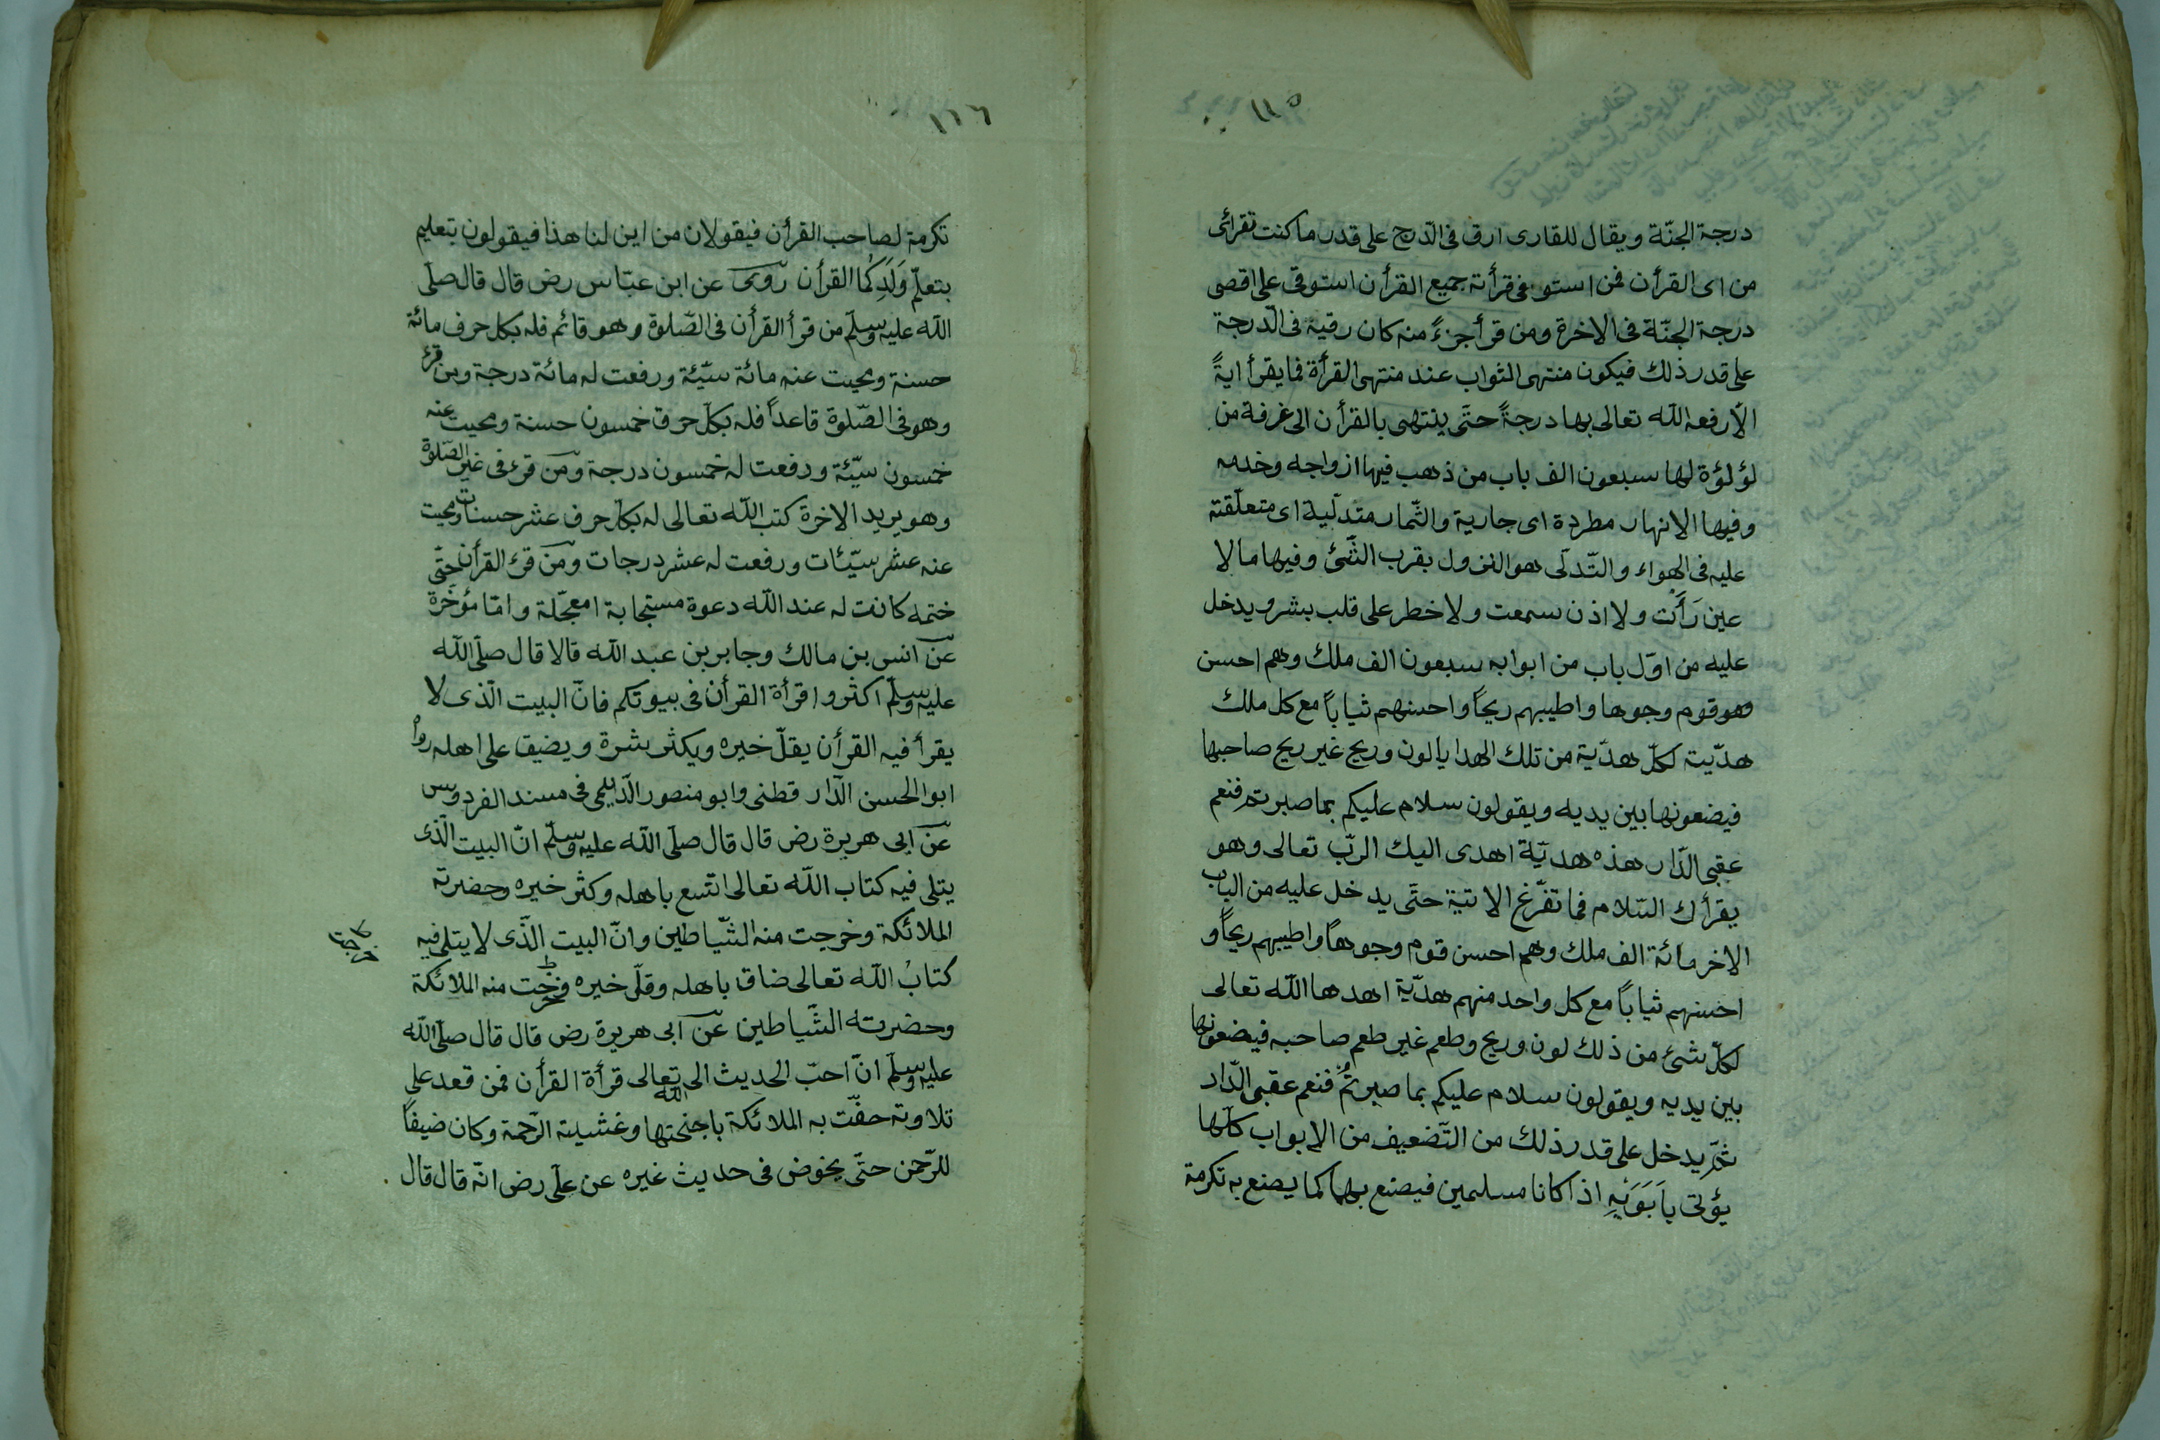 ١١٥
درجة الجنّة ويقال للقارى ارق فى الدّرج على قدر ماكنت تقرائى
من اى القرأن فمن استوفى قرأته جميع القرأن استوقى على اقصى
درجة الجنّة فى الاخرة ومن قرأ جزءً منه كان رقية فى الدّرجة
على قدر ذلك فيكون منتهى الثواب عند منتهى القرأة فما يقرأ ايةً
الّا رفعه اللّه تعالى بها درجةً حتّى ينتهى بالقرأن الى غرفة من
لؤلؤة لها سبعون الف باب من ذهب فيها ازواجه وخدمه
وفيها الانهار مطردة اى جارية والثّمار متدلّية اى متعلّقته
عليه فى الهواء والتّدلّى هو النزول بقرب الشّئ وفيها ما لا
عين رَأَت ولا اذن سمعت ولا خطر على قلب بشر ويدخل
عليه من اوّل باب من ابوابه سبعون الف ملك وهم احسن
وهو قوم وجوها واطيبهم ريحًا واحسنهم ثيابًا مع كل ملك
هدّيت لكلّ هدّية من تلك الهدايا لون وريح غير ريح صاحبها
فيضعونها بين يديه ويقولون سلام عليكم بما صبرتم فنعم
عقبى الدّار هذه هديّة اهدى اليك الربّ تعالى وهو
يقرأك السّلام فما تفّرغ الانية حتّى يدخل عليه من الباب
الاخر مائة الف ملك وهم احسن قوم وجوهاً واطيبهم ريحاً و
احسنهم ثياباً مع كل واحد منهم هدّية اهدها اللّه تعالى
لكلّ شئ من ذلك لون وريح وطعم غير طعم صاحبه فيضعونها
بين يديه ويقولون سلام عليكم بما صبرتُم فنعم عقبى الدّار
ثمّ يدخل على قدر ذلك من التّضعيف من الابواب كلّها
يؤتى بِاَبَوَيْهِ اذا كانا مسلمين فيصنع بهما كما يصنع به تكرمة
١١٦
تكرمة لصاحب القرأن فيقولان من اين لنا هذا فيقولون بتعليم
بتعلّم وَلَدِكُما القرأن روى عن ابن عبّاس رض قال قال صلّى
اللّه عليه وسلّم من قرأ القرأن فى الصّلوة وهو قائم فله بكل حرف مائة
حسنة ومحيت عنه مائة سيّئة ورفعت له مائة درجة ومن قرئ
وهو فى الصّلوة قاعداً فله بكلّ حرف خمسون حسنة ومحيت عنه
خمسون سيّئة ورفعت له خمسون درجة ومن قرء فى غير الصّلوة
وهو يريد الاخرة كتب اللّه تعالى له بكلّ حرف عشر حسنات ومحيت
عنه عشر سيّئات ورفعت له عشر درجات ومن قرئ القرأن حتّى
ختمه كانت له عند اللّه دعوة مستجابة امعجّلة وامّا مؤخّرة
عن انس بن مالك وجابر بن عبد اللّه قالا قال صلّى اللّه
عليه وسلّم اكثروا قرأة القرأن فى بيوتكم فانّ البيت الّذى لا
يقرأ فيه القرأن يقلّ خيره ويكثر بشرة ويضيق على اهله رواُ
ابو الحسن الدّار قطنى وابو منصور الدّيلمى فى مسند الفردوس
عن ابى هريرة رض قال قال صلّى اللّه عليه وسلّم انّ البيت الّذى
يتلى فيه كتاب اللّه تعالى اتّسع باهله وكثر خيره وحضرته
الملائكة وخرجت منه الشّياطين وانّ البيت الّذى لا يتلى فيه
خرجت
كتابُ اللّه تعالى ضاق باهله وقلّ خيره وخرجت منه الملائكة
وحضرته الشّياطين عن ابى هريرة رض قال قال صلّى اللّه
عليه وسلّم انّ احبّ الحديث الى اللّه تعالى قرأة القرأن فمن قعد على
تلاوته حفّت به الملائكة باجنحتها وغشيته الرّحمة وكان ضيفاً
للرّحمن حتّى يخوض فى حديث غيره عن علّى رض انّه قال قال